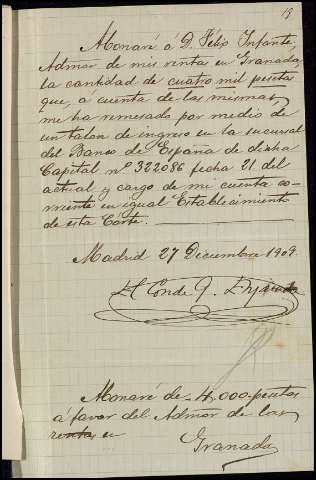 19
Monaré á D. Félix Infante,
Admor de mis rentas en Granada,
la cantidad de cuatro mil pesetas
que, á cuenta de las mismas,
me ha remesado por medio de
un talon de ingreso en la sucursal
del Banco de España de dicha
Capital nº 322086 fecha 21 del
actual y cargo de mi cuenta co-
rriente en igual Establecimiento
de esta Corte.
Madrid 27 Diciembre 1909.
El Conde
Monaré de 4,000 pesetas
á favor del Admor de las
rentas en
Granada